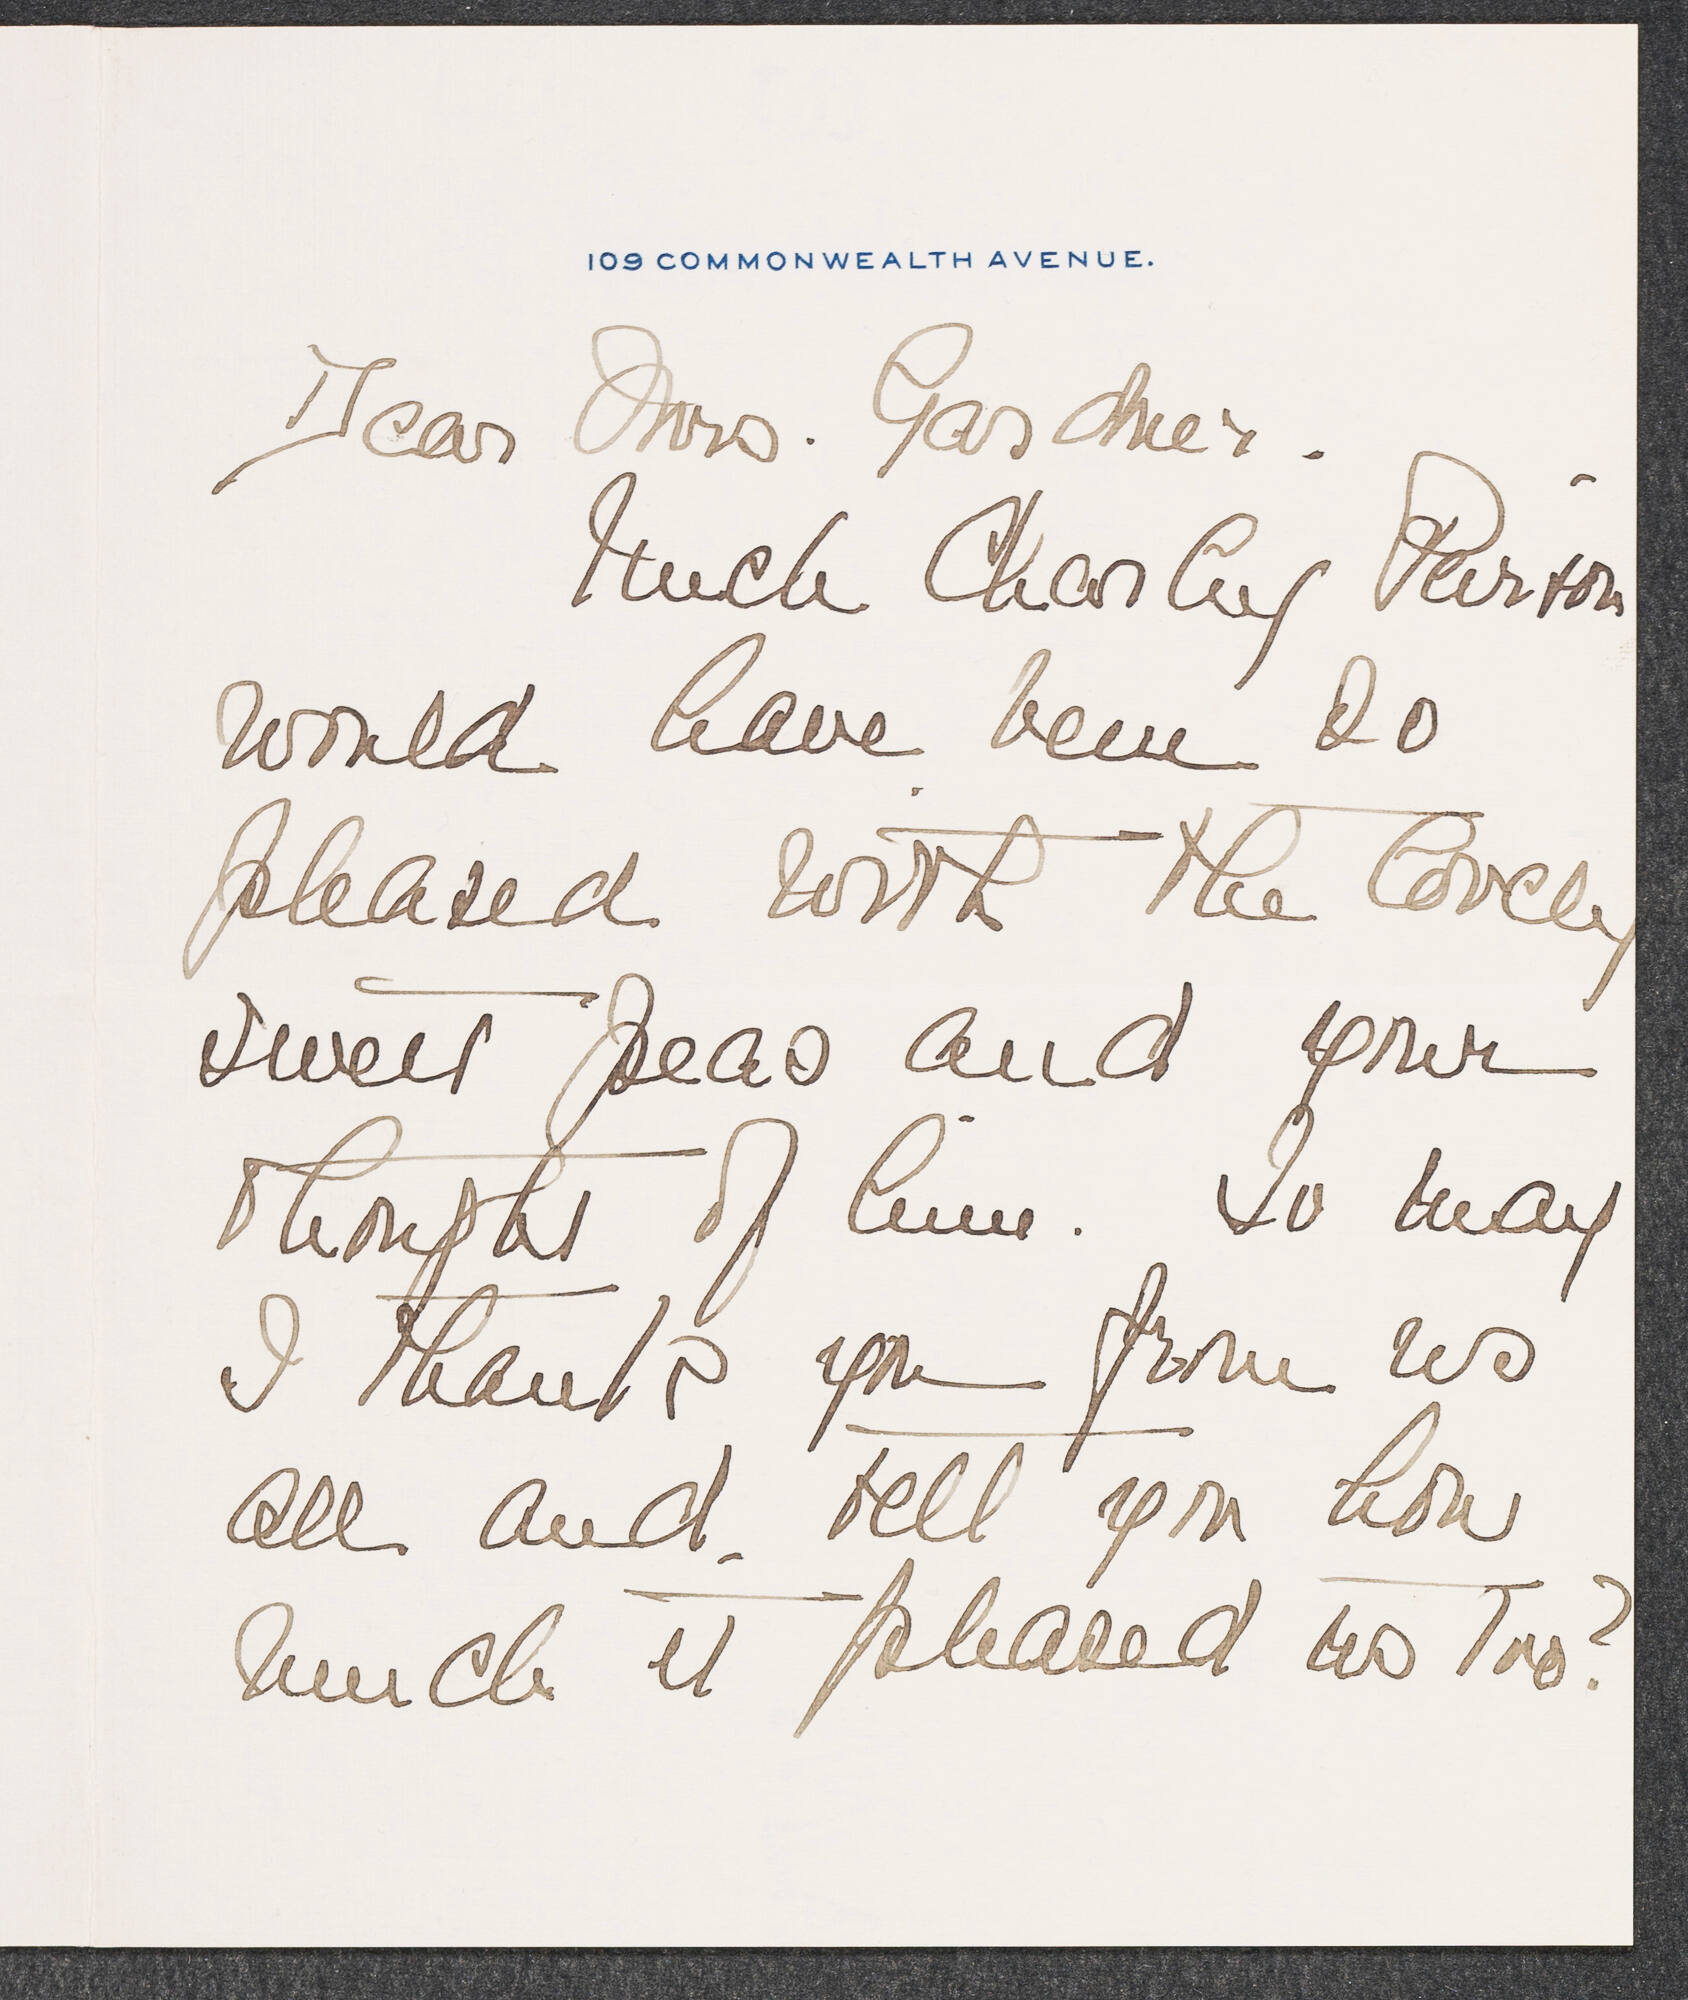 109 COMMONWEALTH AVENUE.
Dear Mrs. Gardner.
Uncle Charley Peirson
would have been so
pleased with the lovely
sweet peas and your
thought of him. So may
I thank you from us
all and tell you how
much it pleased us too?